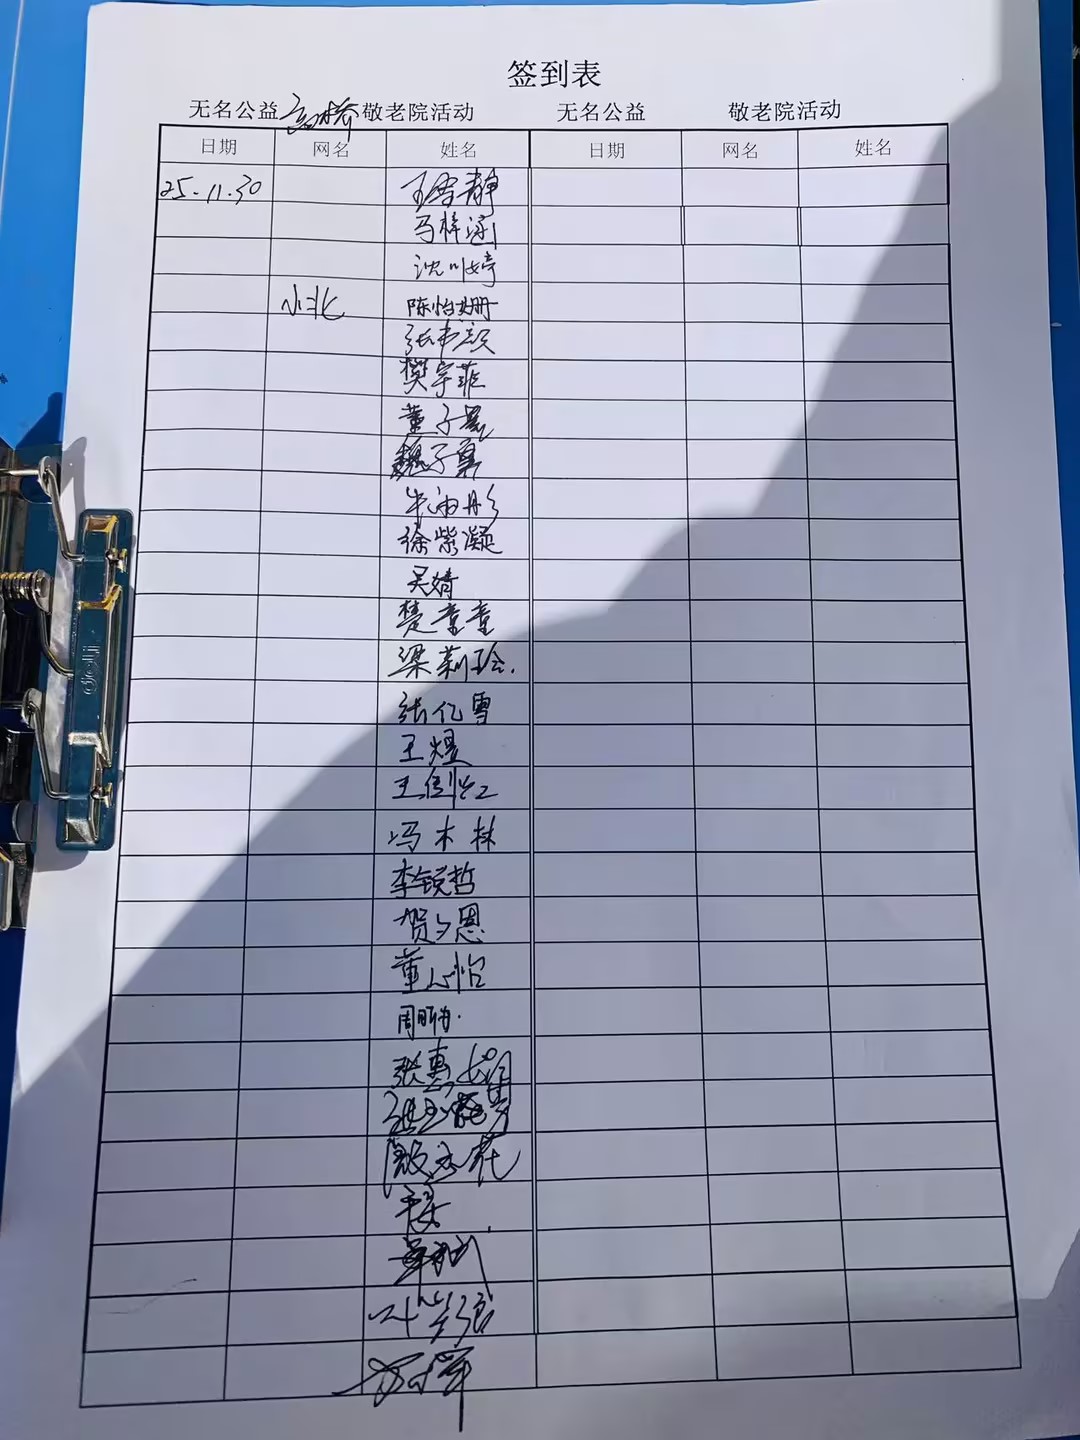 签到表
无名公益 高桥 敬老院活动 无名公益 敬老院活动
日期 网名 姓名 日期 网名 姓名
25.11.30 王雪静
马梓涵
沈川婷
小北 陈怡姗
张韦颖
樊宇菲
董子晨
魏子寞
朱雨彤
徐紫凝
吴婧
楚童童
梁莉玲.
张亿雪
王煜
王剑红
冯木林
李锐哲
贺夕恩
董心怡
周
张惠娟
张玉
殷永花
叶
deli